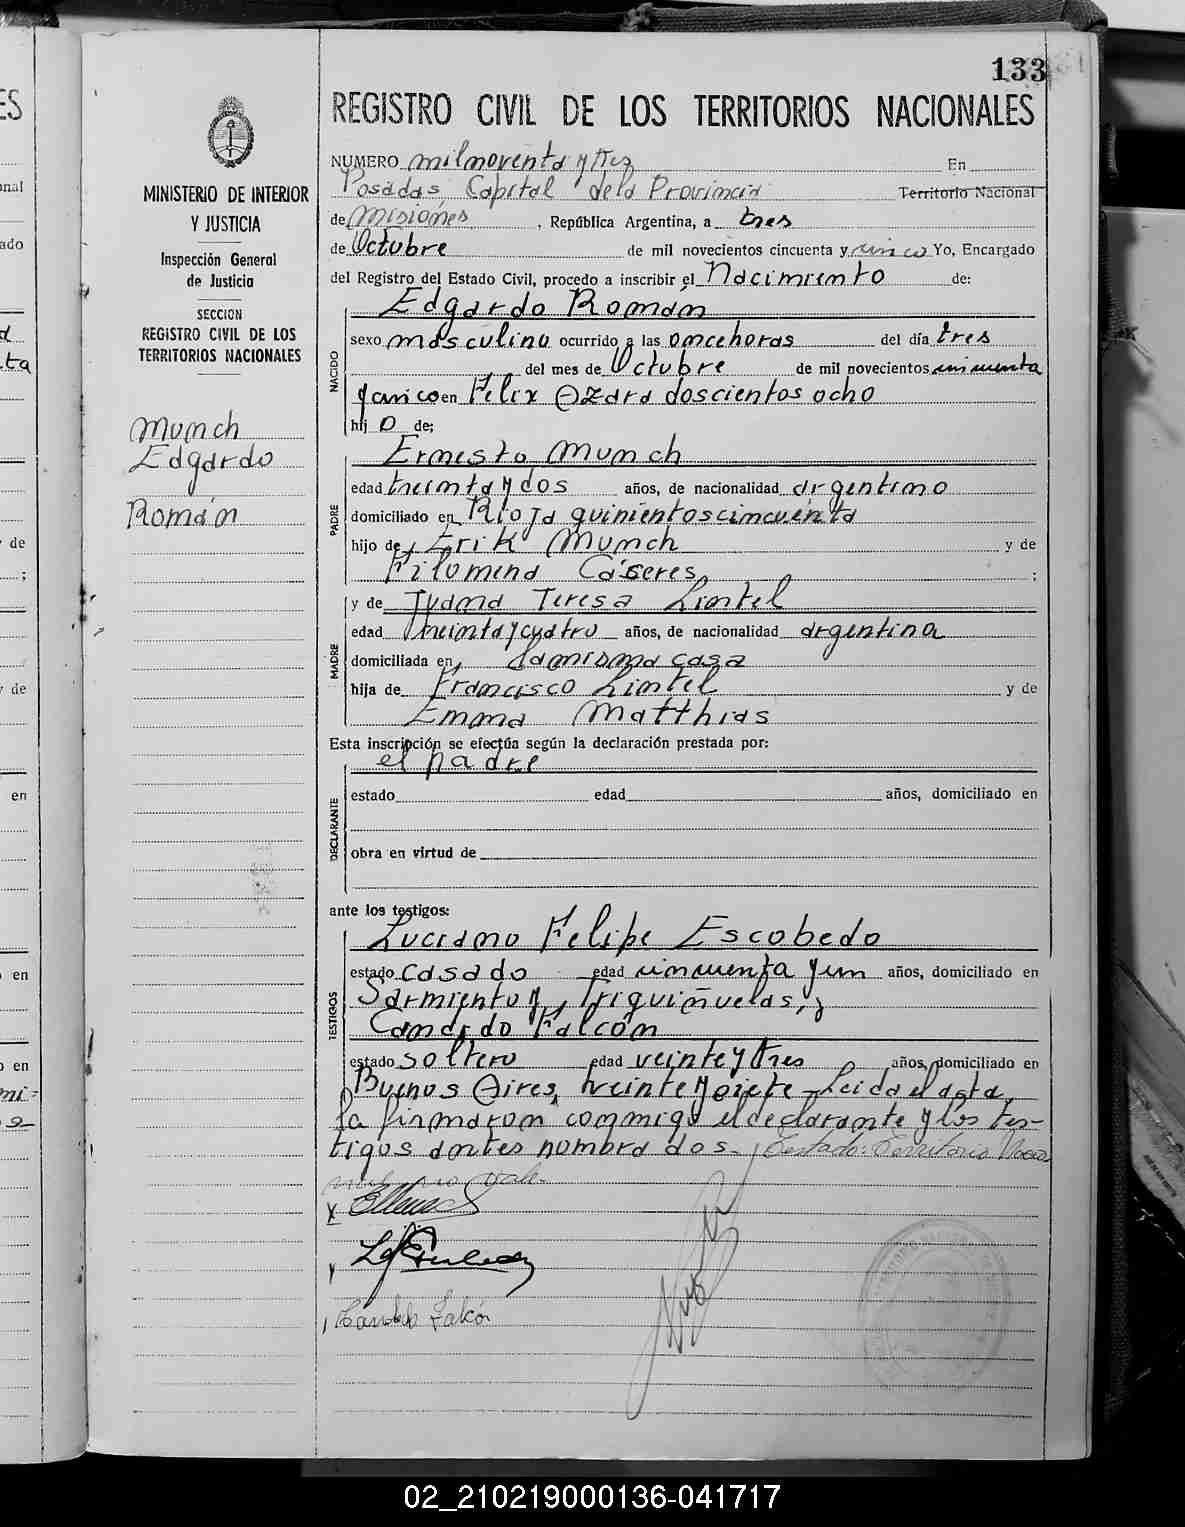 133
REGISTRO CIVIL DE LOS TERRITORIOS NACIONALES
MINISTERIO DE INTERIOR
Y JUSTICIA
Inspección General
de Justicia
SECCION
REGISTRO CIVIL DE LOS
TERRITORIOS NACIONALES
Munch
Edgardo
Román
NUMERO mil noventa y tres En
Posadas Capital de la Provincia Territorio Nacional
de Misiones, República Argentina, a tres
de Octubre de mil novecientos cincuenta y cinco Yo, Encargado
del Registro del Estado Civil, procedo a inscribir el Nacimiento de:
NACIDO
Edgardo Román
sexo masculino ocurrido a las once horas del día tres
del mes de Octubre de mil novecientos cincuenta
y cinco en Felix Azara doscientos ocho
hijo de:
PADRE
Ernesto Munch
edad treinta y dos años, de nacionalidad argentino
domiciliado en Rioja quinientos cincuenta
hijo de Erik Munch y de
Filomena Cáseres;
MADRE
y de Juana Teresa Lintel
edad treinta y cuatro años, de nacionalidad argentina
domiciliada en, la misma casa
hija de Francisco Lintel y de
Emma Matthias
Esta inscripción se efectúa según la declaración prestada por:
el padre
DECLARANTE
estado edad años, domiciliado en
obra en virtud de
ante los testigos:
TESTIGOS
Luciano Felipe Escobedo
estado casado edad cincuenta y un años, domiciliado en
Sarmiento y Triquiñuelas, y
Candido Falcón
estado soltero edad veinte y tres años, domiciliado en
Buenos Aires, veinte y siete - Leida el acta,
la firmaron conmigo el declarante y los tes-
tigos antes nombrados. Testado: Territorio Nacio
nal no vale.
Candido Falcón
02_210219000136-041717